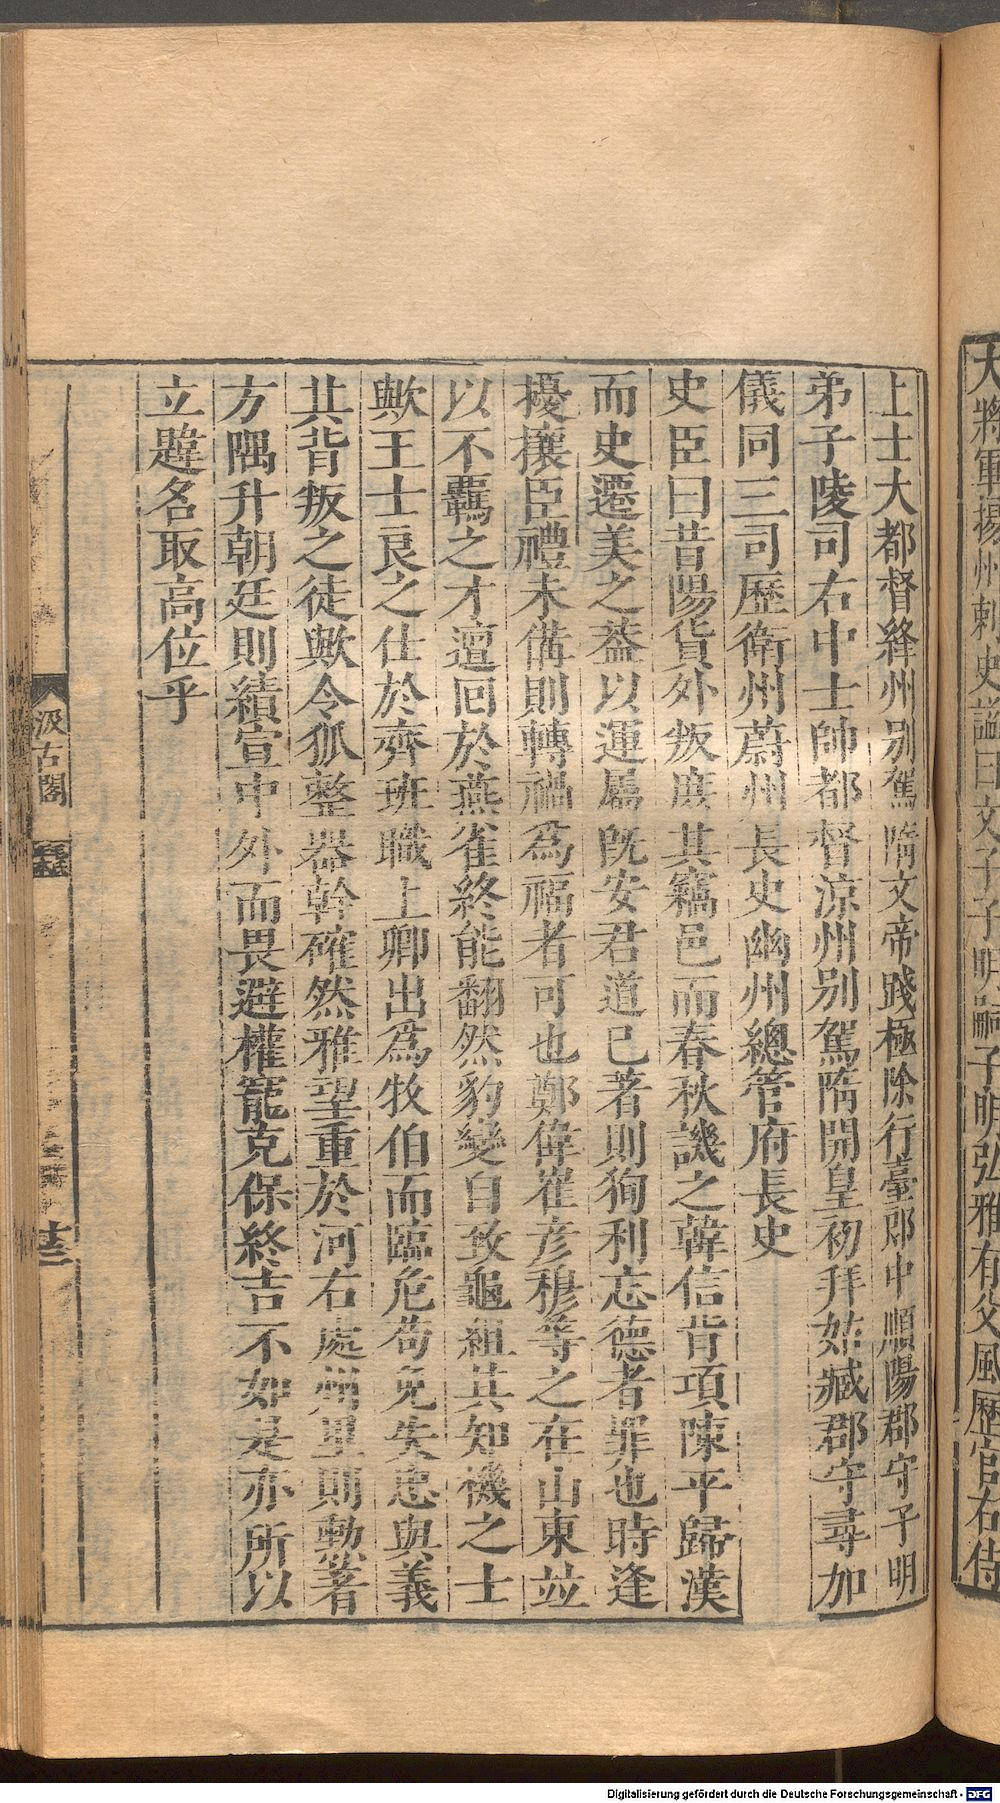 大將軍揚州刺史謚曰文子子明嗣子明弘雅有父風歷官右侍
上士大都督絳州别駕隋文帝踐極除行臺郎中順陽郡守子明
弟子陵司右中士帥都督涼州别駕隋開皇初拜姑臧郡守尋加
儀同三司歷衛州蔚州長史幽州總管府長史
史臣曰昔陽貨外叛庶其竊邑而春秋譏之韓信背項陳平歸漢
而史遷美之葢以運屬旣安君道已著則狥利忘德者罪也時逢
擾攘臣禮未備則轉禍為福者可也鄭偉崔彦穆等之在山東竝
以不羈之才邅回於燕雀終能翻然豹變自致龜組其知機之士
歟王士良之仕於齊班職上卿出為牧伯而臨危苟免失忠與義
其背叛之徒歟令狐整器幹確然雅望重於河右處州里則勲著
方隅升朝廷則績宣中外而畏避權寵克保終吉不如是亦所以
立韙名取高位乎
汲古閣
毛氏
Digitalisierung gefördert durch die Deutsche Forschungsgemeinschaft - DFG